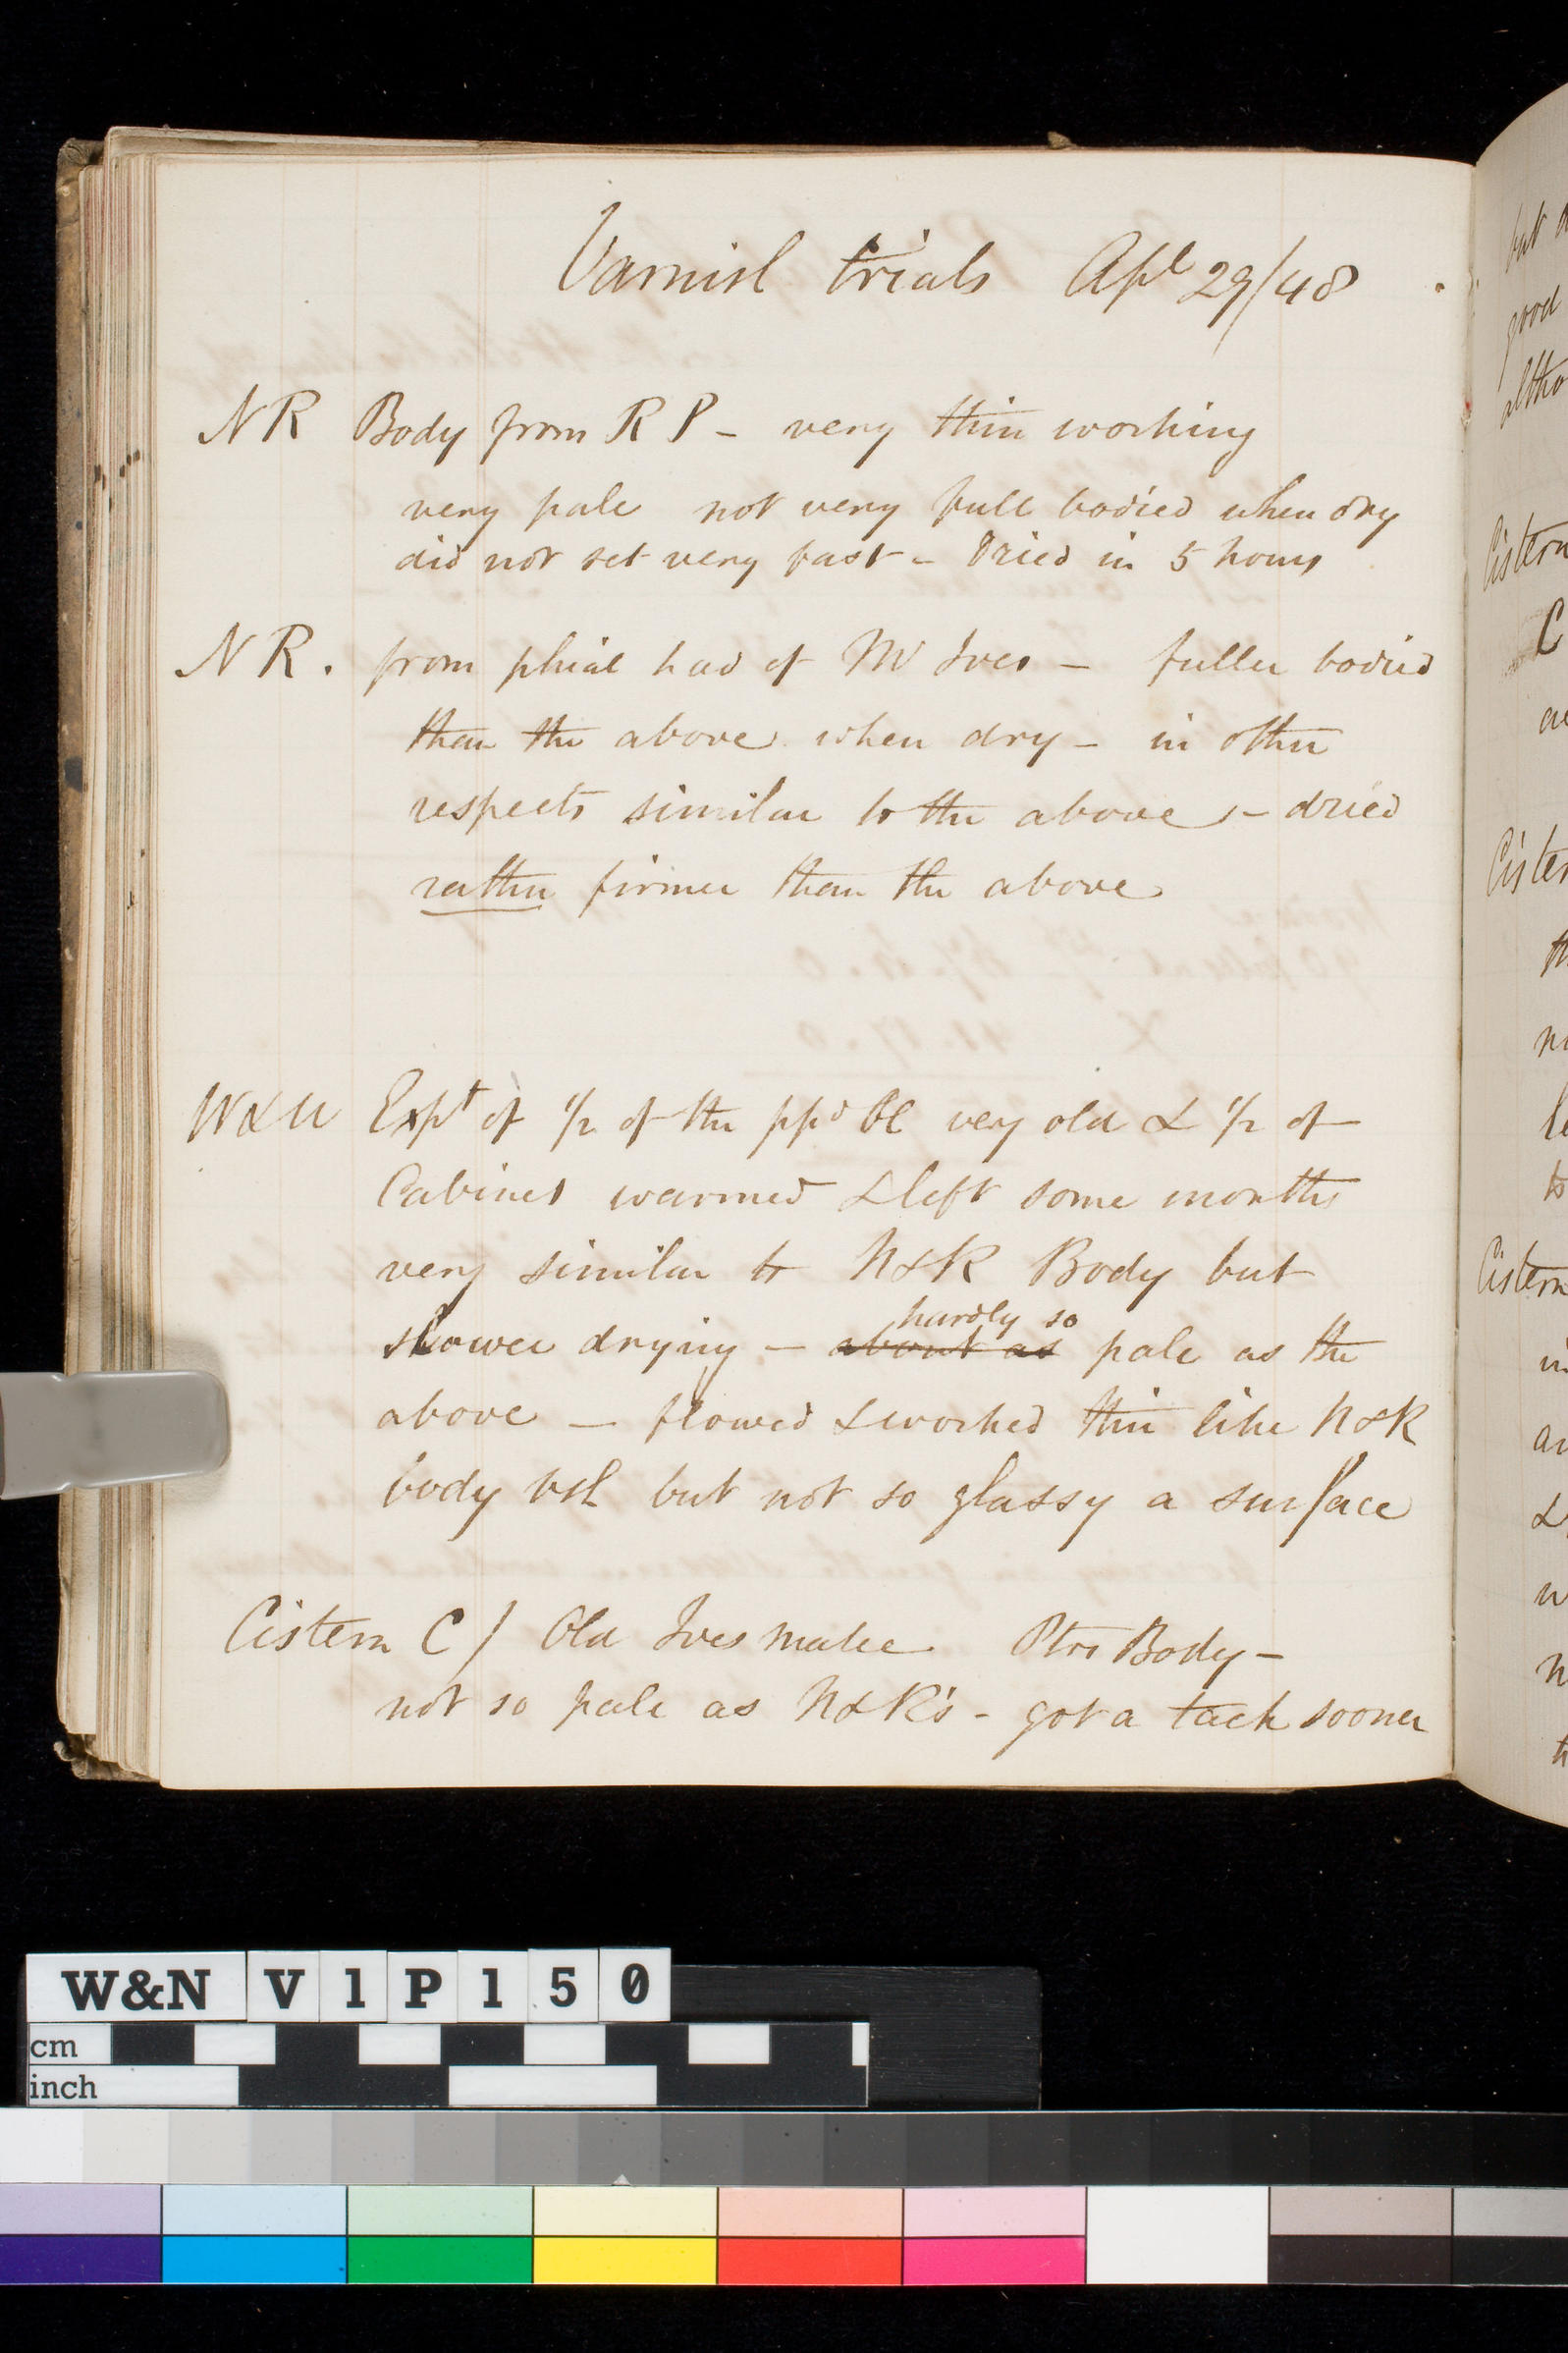 Varnish trials Apl 29/48
NR Body from R P - very thin working
very pale not very full bodied when dry
did not set very fast - Dried in 5 hours
NR. from phial had of Mr Ives - fuller bodied
than the above when dry - in other
respects similar to the above - dried
rather firmer than the above
Expt of 1/2 of the ppd very old & 1/2 of
Cabinet warmed & left some months
very similar to N&R Body but
hardly so
slower drying - about as pale as the
above - flowed & worked thin like N&R
body vsh but not so glassy a surface
Cistern C / Old Ives make Ptrs Body -
not so pale as N&R's - got a tack sooner
but
good
altho
Cistern
C
Cistern
W&N V1P150
cm
inch